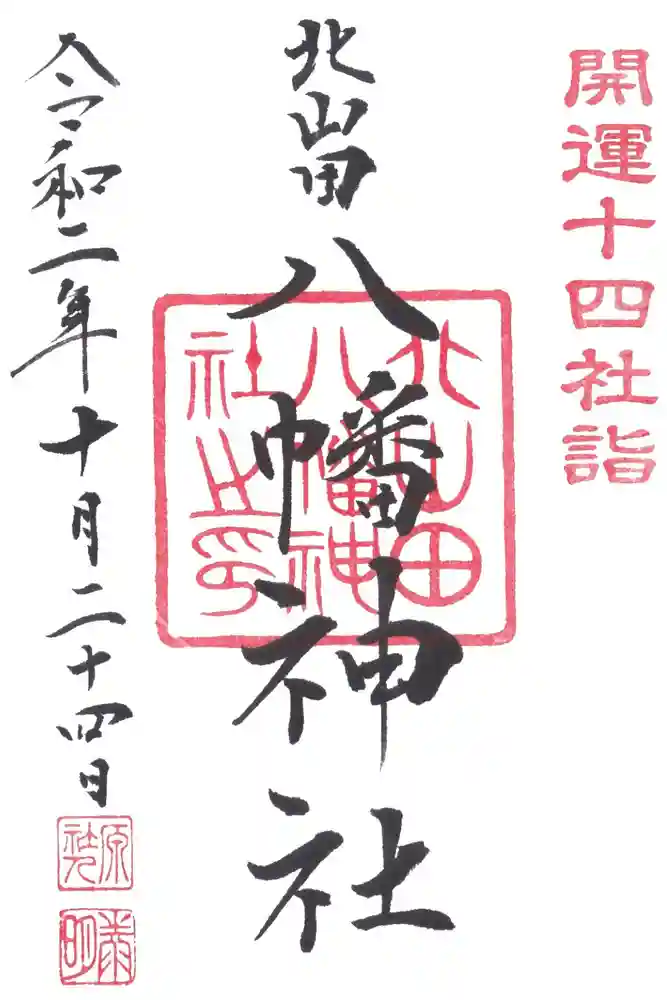 開運十四社詣
北山田
八幡神社
北山田
八幡神
社之印
令和二年十月二十四日